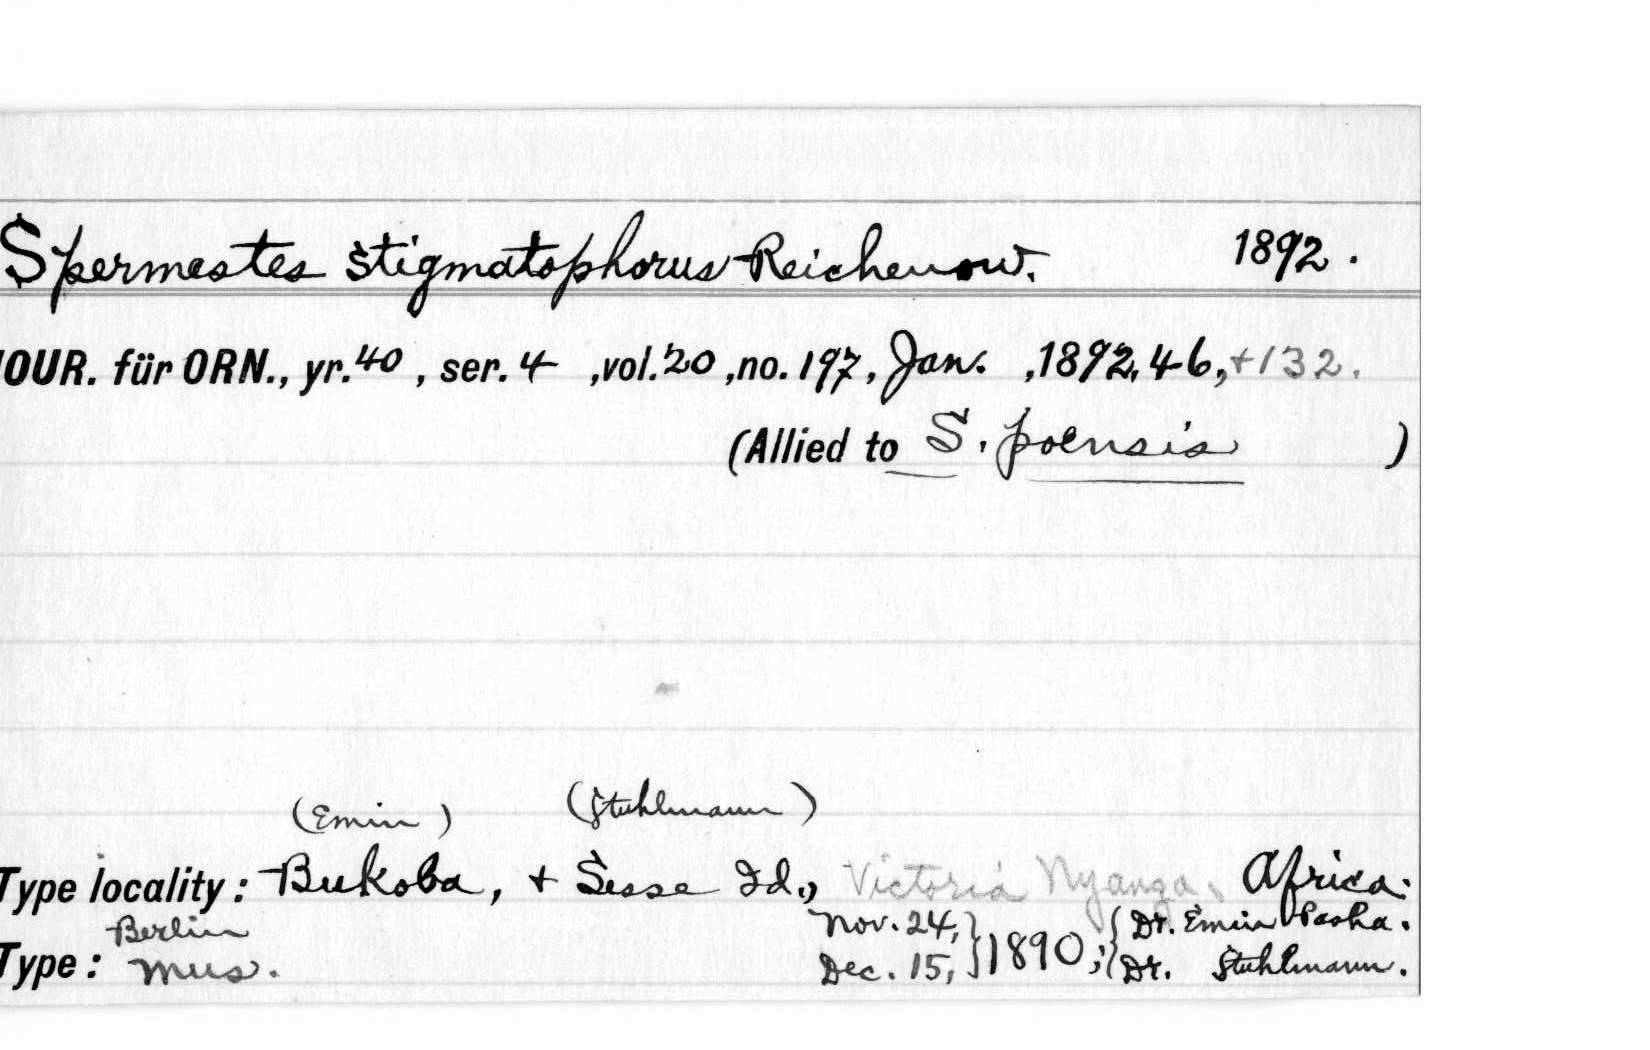 Spermestes stigmatophorus Reichenow. 1892.
JOUR. für ORN., yr. 40, ser. 4, vol. 20, no. 197, Jan., 1892, 46, + 132.
(Allied to S. poensis)
(Emin) (Stuhlmann)
Type locality: Bukoba, + Sesse Id., Victoria Nyanza. Africa.
Berlin Nov. 24, } 1890; { Dr. Emin Pasha.
Type: Mus. Dec. 15, } { Dr. Stuhlmann.